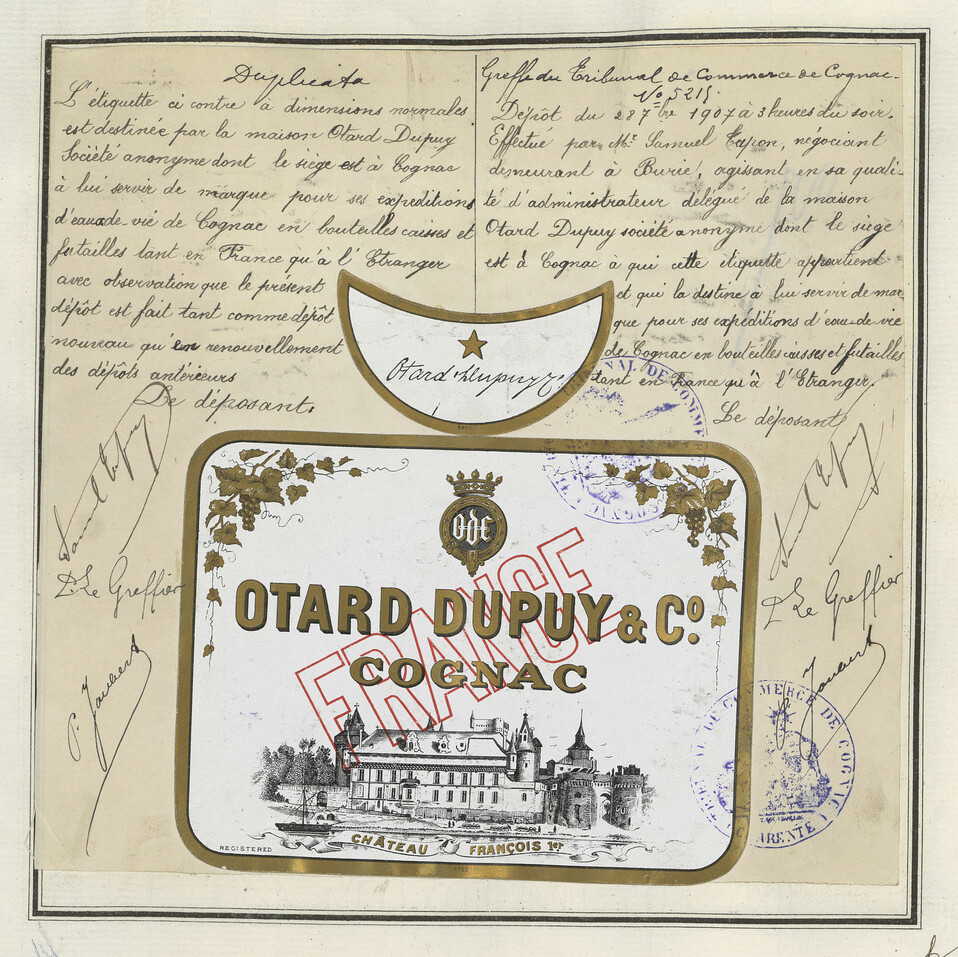 Duplicata
L'étiquette ci contre à dimensions normales
est destinée par la maison Otard Dupuy
Société anonyme dont le siège est à Cognac
à lui servir de marque pour ses expéditions
d'eaux-de-vie de Cognac en bouteilles caisses et
futailles tant en France qu'à l'Etranger
avec observation que le présent
dépôt est fait tant comme dépôt
nouveau qu'en renouvellement
des dépôts antérieurs
Le déposant.
P. Le Greffier
P. Joubert
Greffe du Tribunal de Commerce de Cognac.
No 5215.
Dépôt du 28 7bre 1907 à 3 heures du soir.
Effectué par Mr Samuel Capon, négociant
demeurant à Burie, agissant en sa quali-
té d'administrateur délégué de la maison
Otard Dupuy société anonyme dont le siège
est à Cognac à qui cette étiquette appartient
et qui la destine à lui servir de mar
que pour ses expéditions d'eau-de-vie
de Cognac en bouteilles caisses et futailles
tant en France qu'à l'Etranger.
Le déposant
P. Le Greffier
Joubert
Otard Dupuy & Co
TRIBUNAL DE COMMERCE
COGNAC
ODC
FRANCE
OTARD DUPUY & Co.
COGNAC
CHÂTEAU FRANÇOIS 1er
REGISTERED
TRIBUNAL DE COMMERCE DE COGNAC
CHARENTE